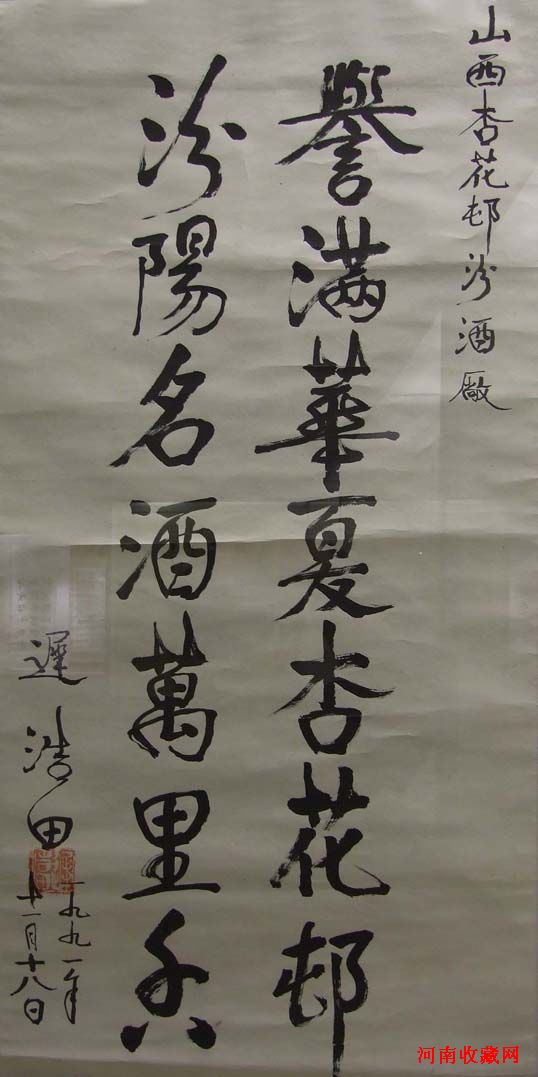 山西杏花邨汾酒廠
譽滿華夏杏花邨
汾陽名酒萬里香
遲浩田
一九九一年
十一月十八日
河南收藏网